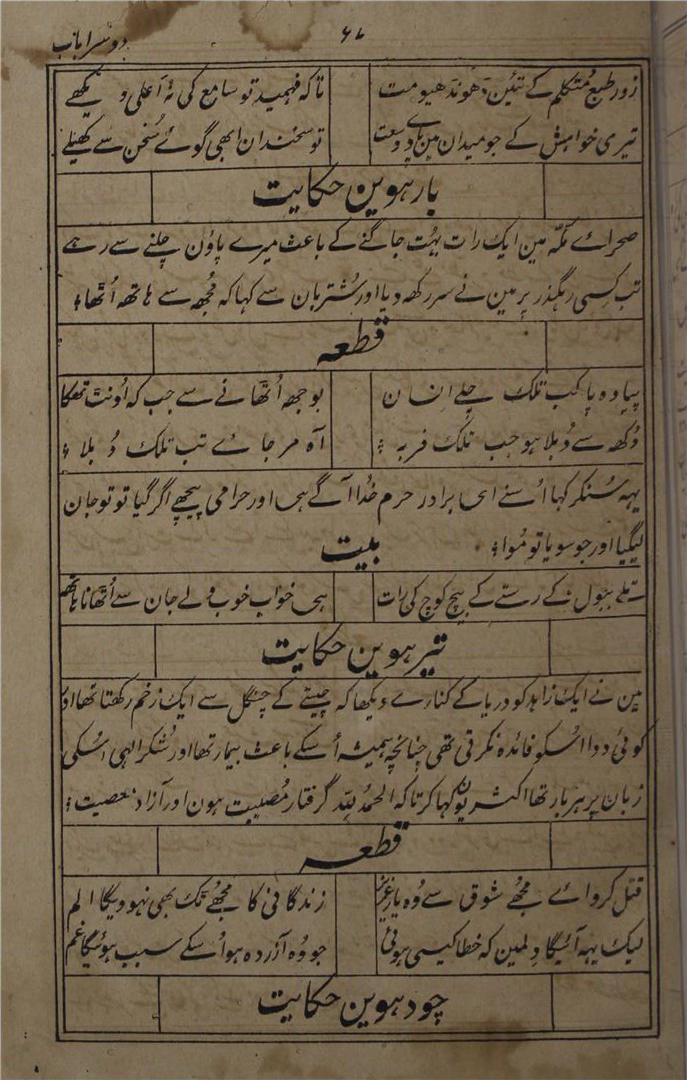 دوسرا باب
۶۷
زور طبع متکلم کے تئین دھوندھیو مت تا کہ فہمید تو سامع کی نہ اعلی دیکھے
تیری خواہش کے جو میدان مین پاے وسعت تو سخندان ابھی گوئے سخن سے کھیلے
بارہوین حکایت
صحرائے مکّہ مین ایک رات بہت جاگنے کے باعث میرے پاؤن چلنے سے رہے
تب کسی رہگذر پر مین نے سر رکھ دیا اور شتربان سے کہا کہ مجھ سے ہاتھ اُٹھا؛
قطعہ
پیادہ پا کب تلک چلے انسان بوجھ اُٹھانے سے جب کہ اُونٹ تھکا
دُکھ سے دُبلا ہو جب تلک فربہ ؛ آہ مر جائے تب تلک دُبلا ؛
یہہ سنکر کہا اُسنے ای برادر حرم خدا آگے ہی اور حرامی پیچھے اگر گیا تو تو جان
لیگیا اور جو سویا تو مُوا؛ بیت
تلے ببول کے رستے کے بیچ کوچ کی رات ہی خواب خوب ولے جان سے اُٹھانا ہاتھ
تیرہوین حکایت
مین نے ایک زاہد کو دریا کے کنارے دیکھا کہ چیتے کے چنگل سے ایک زخم رکھتا تھا اور
کوئی دوا اُسکو فائدہ نکرتی تھی چنانچہ ہمیشہ اُسکے باعث بیمار تھا اور شکر الہی اُسکی
زبان پر ہر بار تھا اکثر یون کہا کرتا کہ الحمد للہ گرفتار مصیبت ہون اور آزاد معصیت؛
قطعہ
قتل کروائے مجھے شوق سے وُہ یار عزیز زندگانی کا مجھے تک بھی نہوویگا الم
لیک یہہ آئیگا دلمین کہ خطا کیسی ہوئی جو وُہ آزردہ ہوا اُسکے سبب ہوئیگا غم
چودہوین حکایت